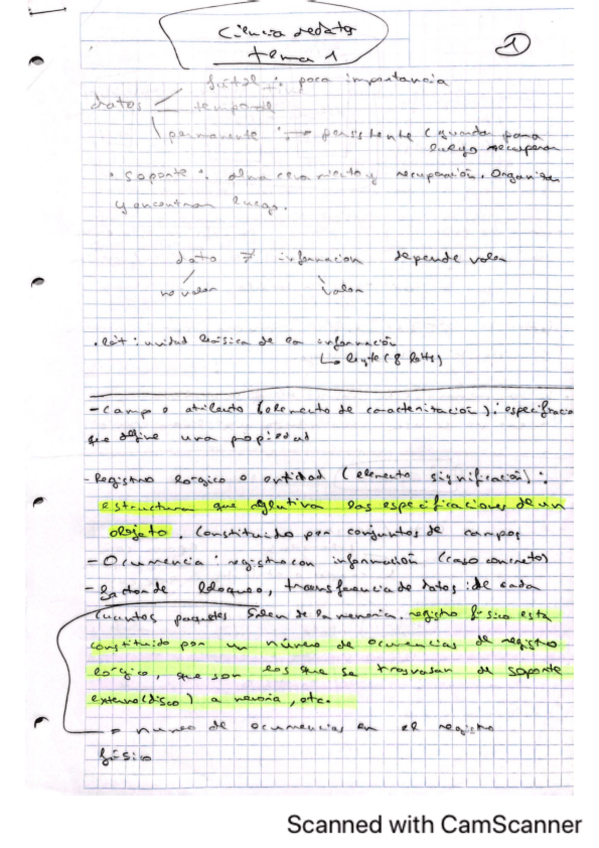 Ciencia de datos
tema 1
1
fútil : poca importancia
datos temporal
permanente : → persistente (guardar para
luego recuperar
• Soporte : almacenamiento y recuperación. Organizar
y encontrar luego.
dato ≠ información depende valor
no valor valor
• bit : unidad básica de la información
↳ byte (8 bits)
- Campo o atributo (elemento de caracterización) : especificación
que define una propiedad
- Registro lógico o entidad (elemento significación) :
estructura que aglutina las especificaciones de un
objeto. Constituido por conjuntos de campos
- Ocurrencia : registro con información (caso concreto)
- Factor de bloqueo, transferencia de datos : de cada
cuantos paquetes salen de la memoria. registro físico está
constituido por un número de ocurrencias de registro
lógico, que son los que se trasvasan de soporte
externo (disco) a memoria, etc.
número de ocurrencias en el registro
físico
Scanned with CamScanner